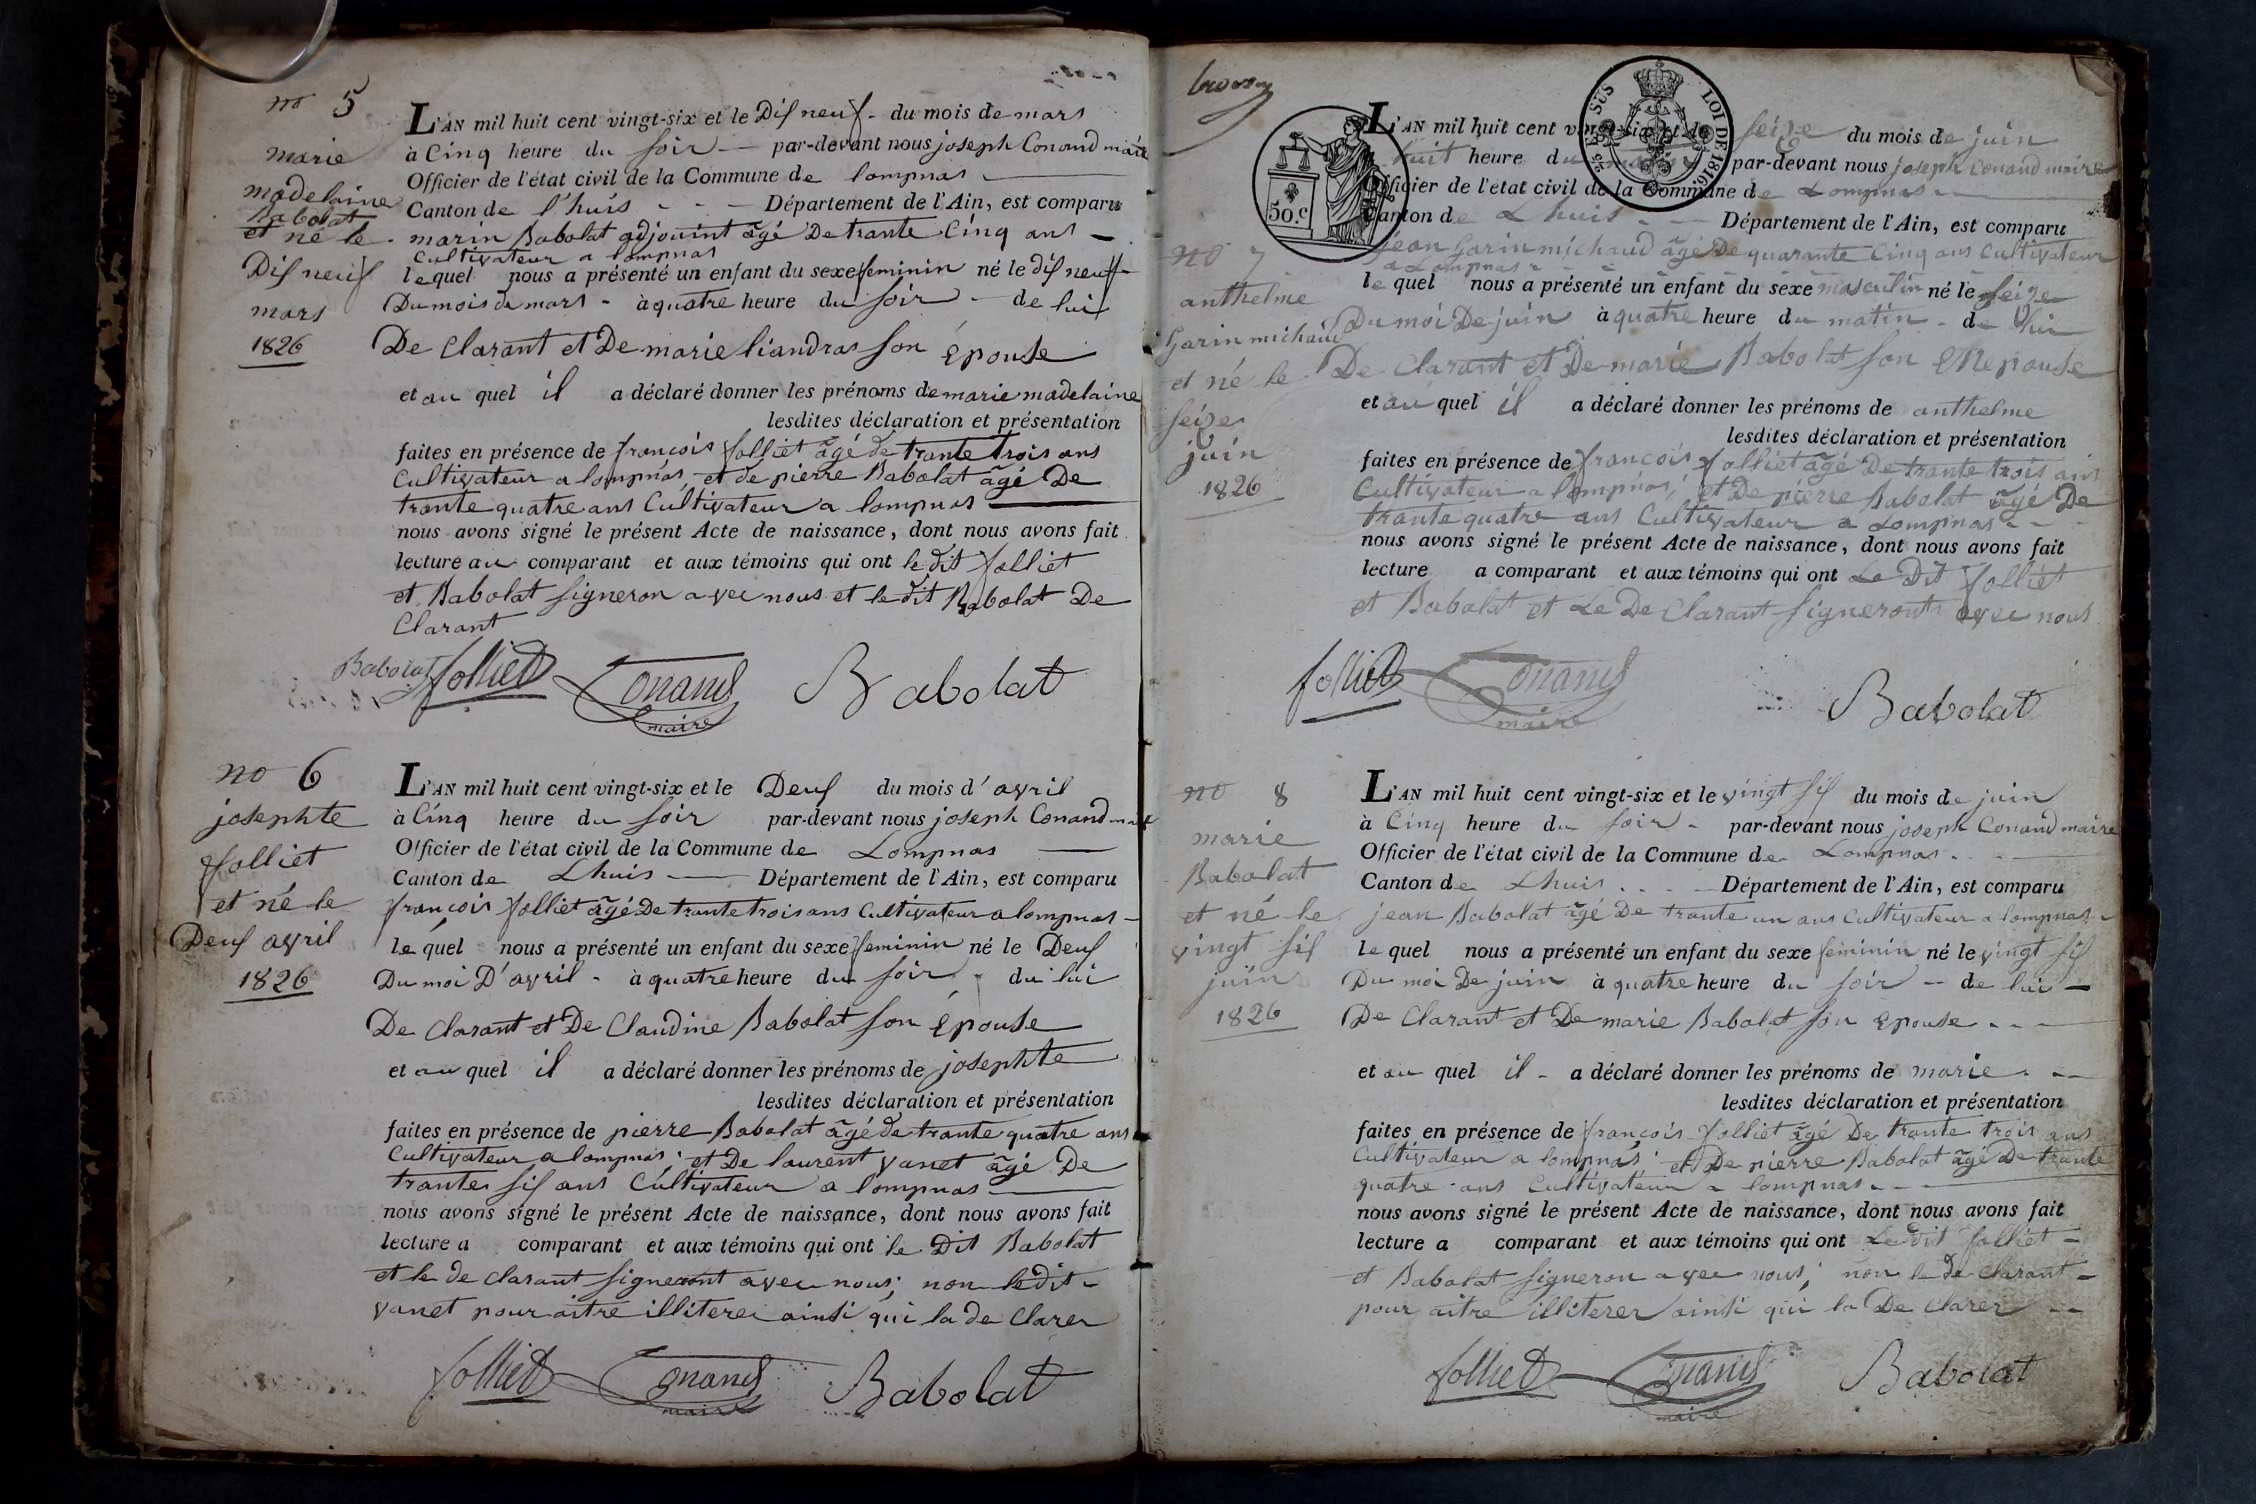 no 5
marie
madelaine
Babolat
et né le
Dis neuf
mars
1826
L'AN mil huit cent vingt-six et le Dis neuf - du mois de mars
à Cinq heure du soir — par-devant nous joseph Conand maire
Officier de l'état civil de la Commune de lompnas
Canton de l'huis - - - Département de l'Ain, est comparu
marin Babolat adjouint âgé De trante Cinq ans —
Cultivateur a lompnas
le quel nous a présenté un enfant du sexe feminin né le dis neuf
Du mois de mars - à quatre heure du soir - de lui
De Clarant et De marie liandras son Epouse
et au quel il a déclaré donner les prénoms de marie madelaine
lesdites déclaration et présentation
faites en présence de françois folliet âgé de trante trois ans
Cultivateur a lompnas, et de pierre Babolat âgé De
trante quatre ans Cultivateur a lompnas
nous avons signé le présent Acte de naissance, dont nous avons fait
lecture au comparant et aux témoins qui ont le dit folliet
et Babolat signeron avec nous et le dit Babolat De
Clarant
Babolat folliet Conand Babolat
maire
no 6
josephte
folliet
et né le
Deus avril
1826
L'AN mil huit cent vingt-six et le Deus du mois d'avril
à Cinq heure du soir par-devant nous joseph Conand
Officier de l'état civil de la Commune de Lompnas
Canton de Lhuis Département de l'Ain, est comparu
françois folliet âgé De trante trois ans Cultivateur a lompnas -
le quel nous a présenté un enfant du sexe feminin né le Deus
Du moi D'avril - à quatre heure du soir - du lui
De Clarant et De Claudine Babolat son Epouse
et au quel il a déclaré donner les prénoms de josephte
lesdites déclaration et présentation
faites en présence de pierre Babolat âgé de trante quatre ans
Cultivateur a lompnas, et De laurent vanet âgé De
trante sis ans Cultivateur a lompnas
nous avons signé le présent Acte de naissance, dont nous avons fait
lecture a comparant et aux témoins qui ont le Dit Babolat
et le de clarant signeront avec nous; non le dit -
vanet pour aitre illiterer ainsi qui la de Clarer
folliet Conand Babolat
maire
LOI DE 1816.
50.c
no 7
anthelme
Garin michaud
et né le
seize
juin
1826
L'AN mil huit cent vingt-six et le seize du mois de juin
huit heure du matin par-devant nous joseph Conand maire
Officier de l'état civil de la Commune de Lompnas -
Canton de Lhuis - — Département de l'Ain, est comparu
jean Garin michaud âgé De quarante Cinq ans Cultivateur
a Lompnas -
le quel nous a présenté un enfant du sexe masculin né le seize
Du moi De juin à quatre heure du matin - de lui
De Clarant et De marie Babolat son Epouse
et au quel il a déclaré donner les prénoms de anthelme
lesdites déclaration et présentation
faites en présence de françois folliet âgé De trante trois ans
Cultivateur a lompnas, et De pierre Babolat âgé De
trante quatre ans Cultivateur a Lompnas - -
nous avons signé le présent Acte de naissance, dont nous avons fait
lecture a comparant et aux témoins qui ont Le Dit folliet
et Babolat et Le De Clarant signeront avec nous
folliet Conand Babolat
maire
no 8
marie
Babolat
et né le
vingt sis
juin
1826
L'AN mil huit cent vingt-six et le vingt sis du mois de juin
à Cinq heure du soir - par-devant nous joseph Conand maire
Officier de l'état civil de la Commune de Lompnas -
Canton de Lhuis . . . — Département de l'Ain, est comparu
jean Babolat âgé De trante un ans Cultivateur a lompnas -
le quel nous a présenté un enfant du sexe feminin né le vingt sis
Du moi De juin à quatre heure du soir - de lui —
De Clarant et De marie Babolat son Epouse - - —
et au quel il - a déclaré donner les prénoms de marie - —
lesdites déclaration et présentation
faites en présence de françois folliet âgé De trante trois ans
Cultivateur a lompnas; et De pierre Babolat âgé De trante
quatre ans Cultivateur a lompnas - -
nous avons signé le présent Acte de naissance, dont nous avons fait
lecture a comparant et aux témoins qui ont Le dit folliet -
et Babolat signeron avec nous; non le de clarant -
pour aitre illiterer ainsi qui la De Clarer - —
folliet Conand Babolat
maire